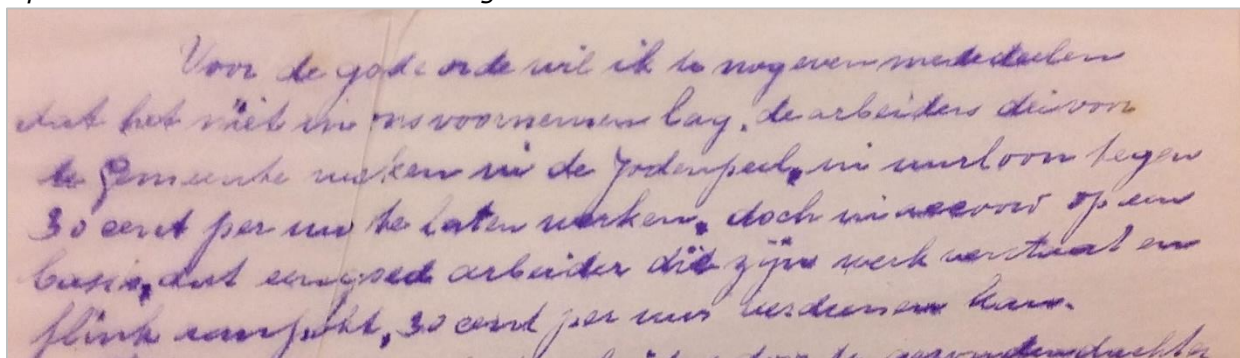 Voor de gode orde wil ik u nog even mededeelen
dat het niet in ons voornemen lag, de arbeiders die van
de Gemeente werken in de Jodenpeel, in uurloon tegen
30 cent per uur te laten werken, doch in accoord op een
basis, dat een goed arbeider die zijn werk verstaat en
flink aanpakt, 30 cent per uur verdienen kan.